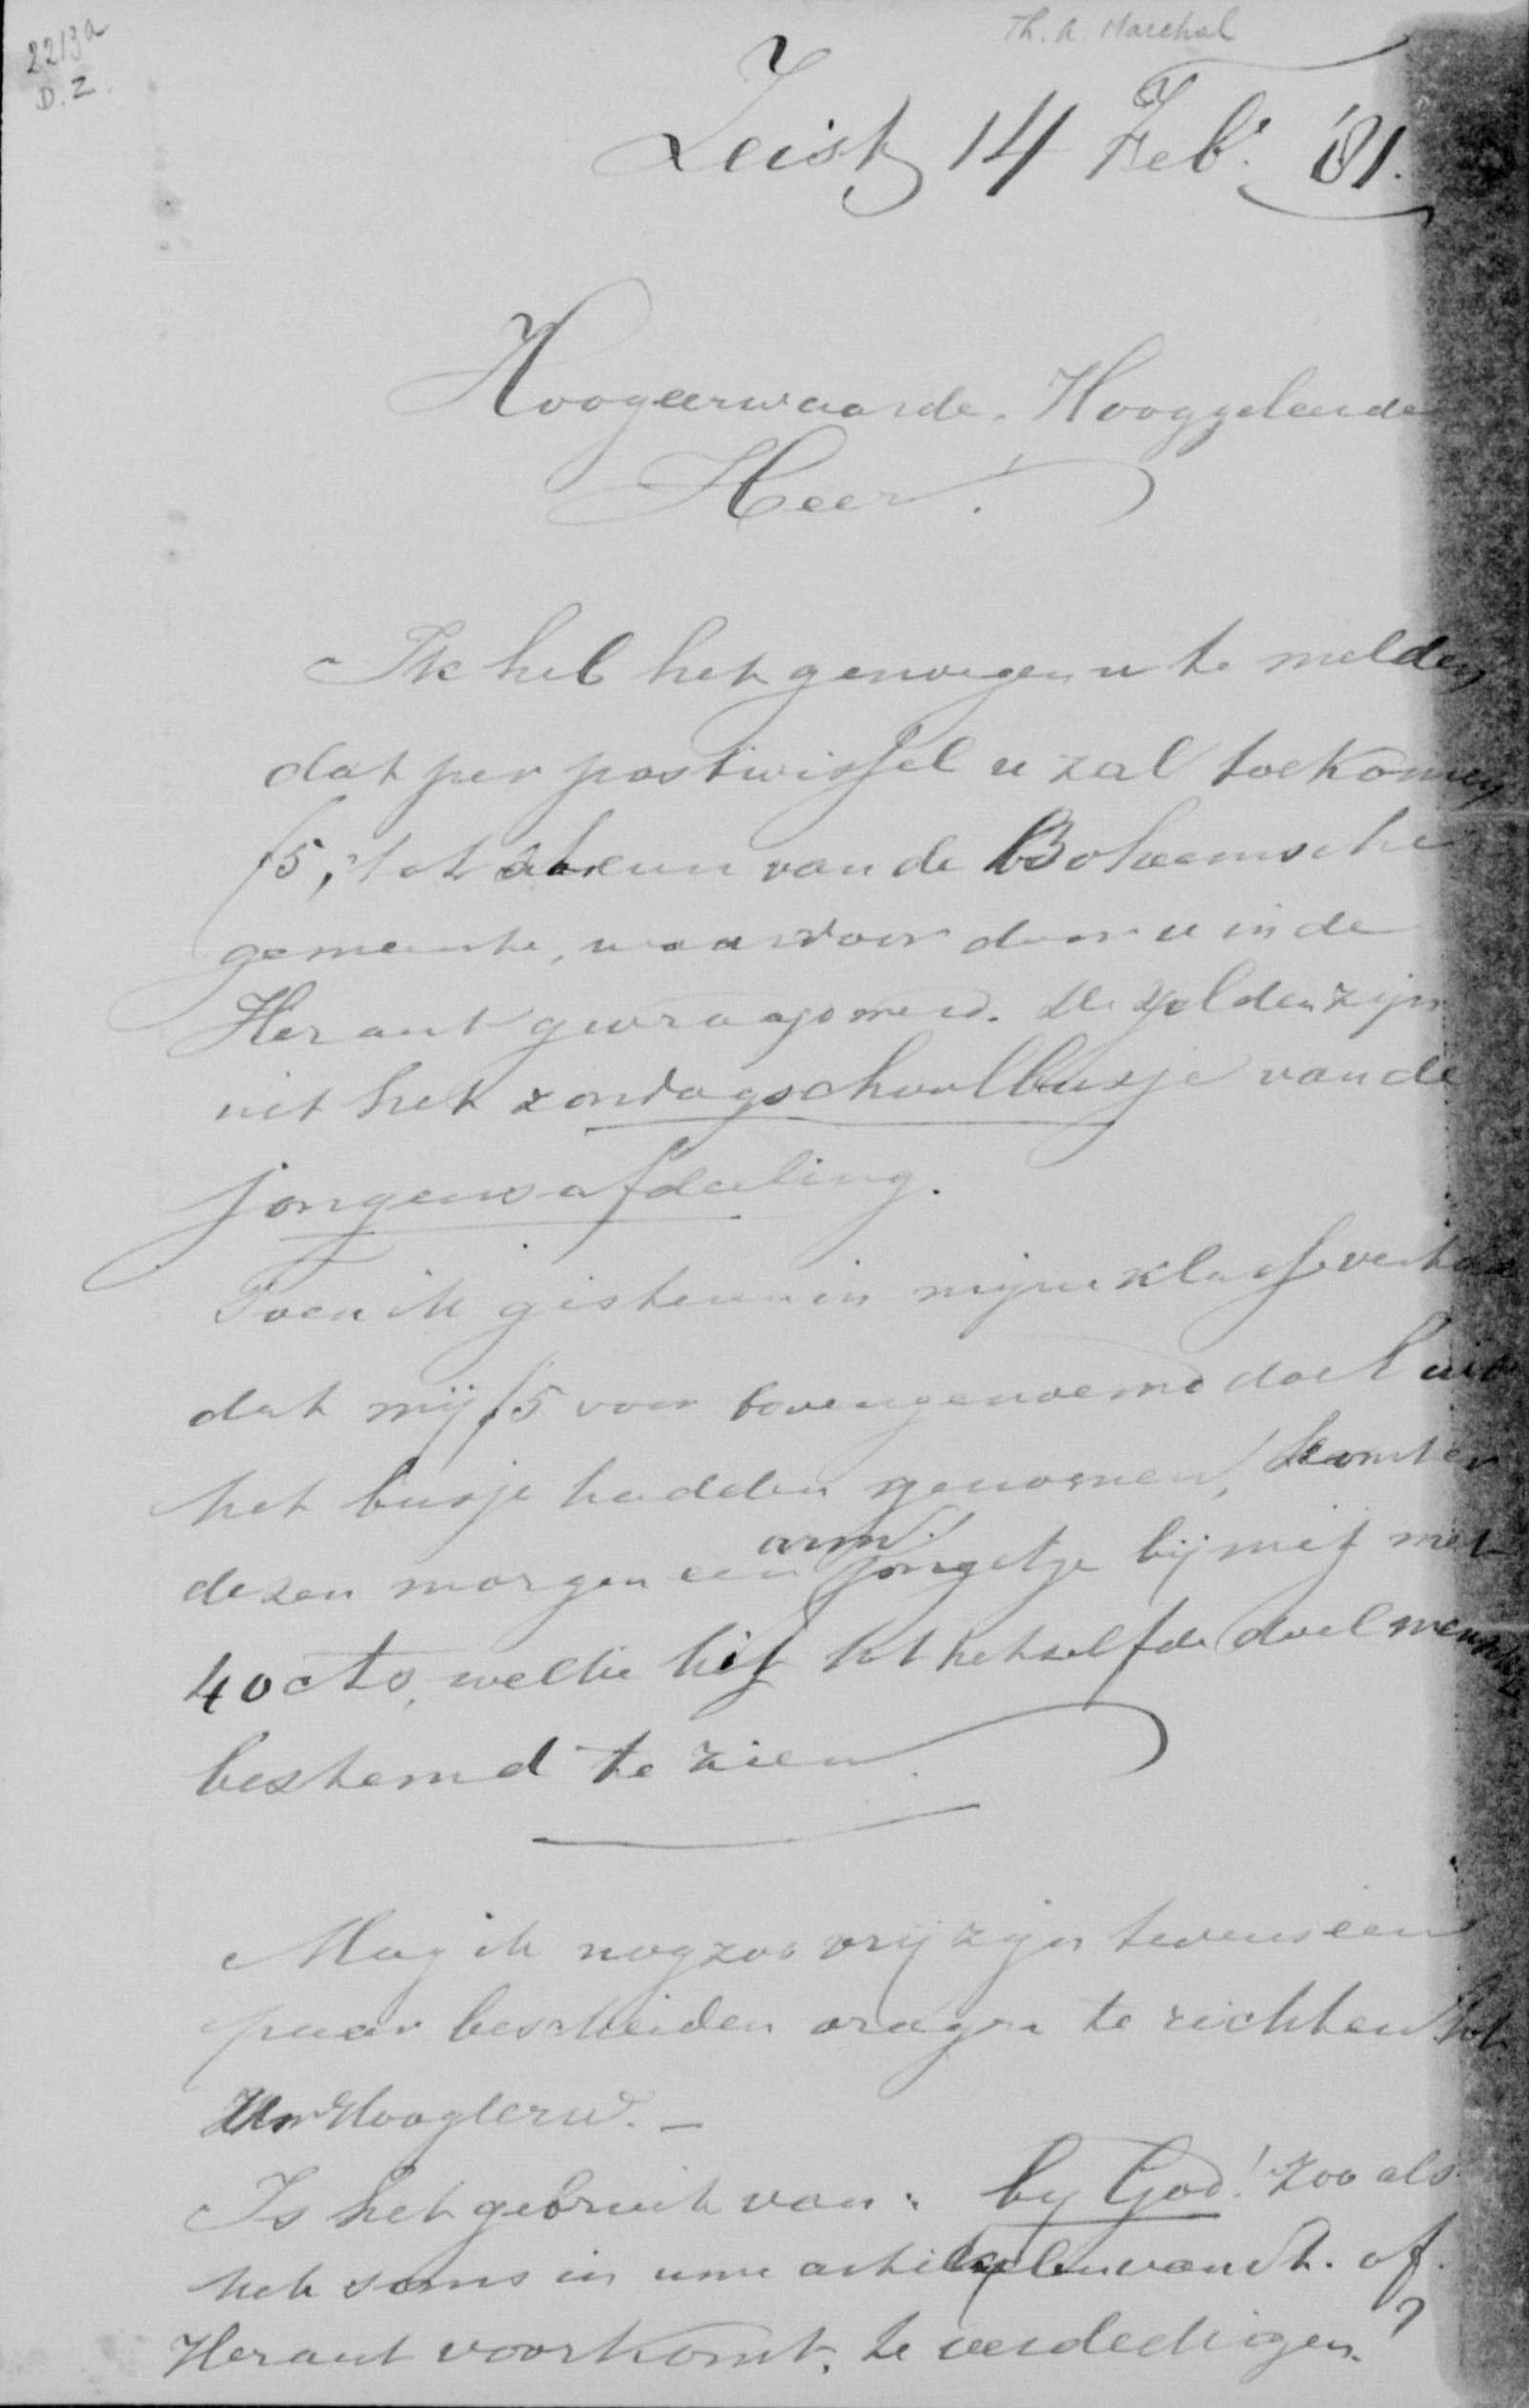 2213a
D. Z.
Th. A. Marchal
Zeist 14 Feb. '81.
Hoogeerwaarde. Hooggeleerde
Heer!
Ik heb het genoegen u te melden
dat per postwissel u zal toekomen
f5, tot steun van de Boheemsche
gemeente, waarvoor door u in de
Heraut gevraagd werd. De gelden zijn
uit het zondagschoolbusje van de
jongensafdeeling.
Toen ik gisteren in mijne klasse
dat wij f5 voor bovengenoemd doel uit
het busje hadden genomen, komt er
dezen morgen een arm jongetje bij mij met
40 cts, welke hij tot hetzelfde doel wenschte
bestemd te zien.
Mag ik nog zoo vrij zijn tevens een
paar bescheiden vragen te richten tot
Uw Hoogleerw. –
Is het gebruik van: by God! zoo als
het soms in uwe artikelen van St. of
Heraut voorkomt, te verdedigen?